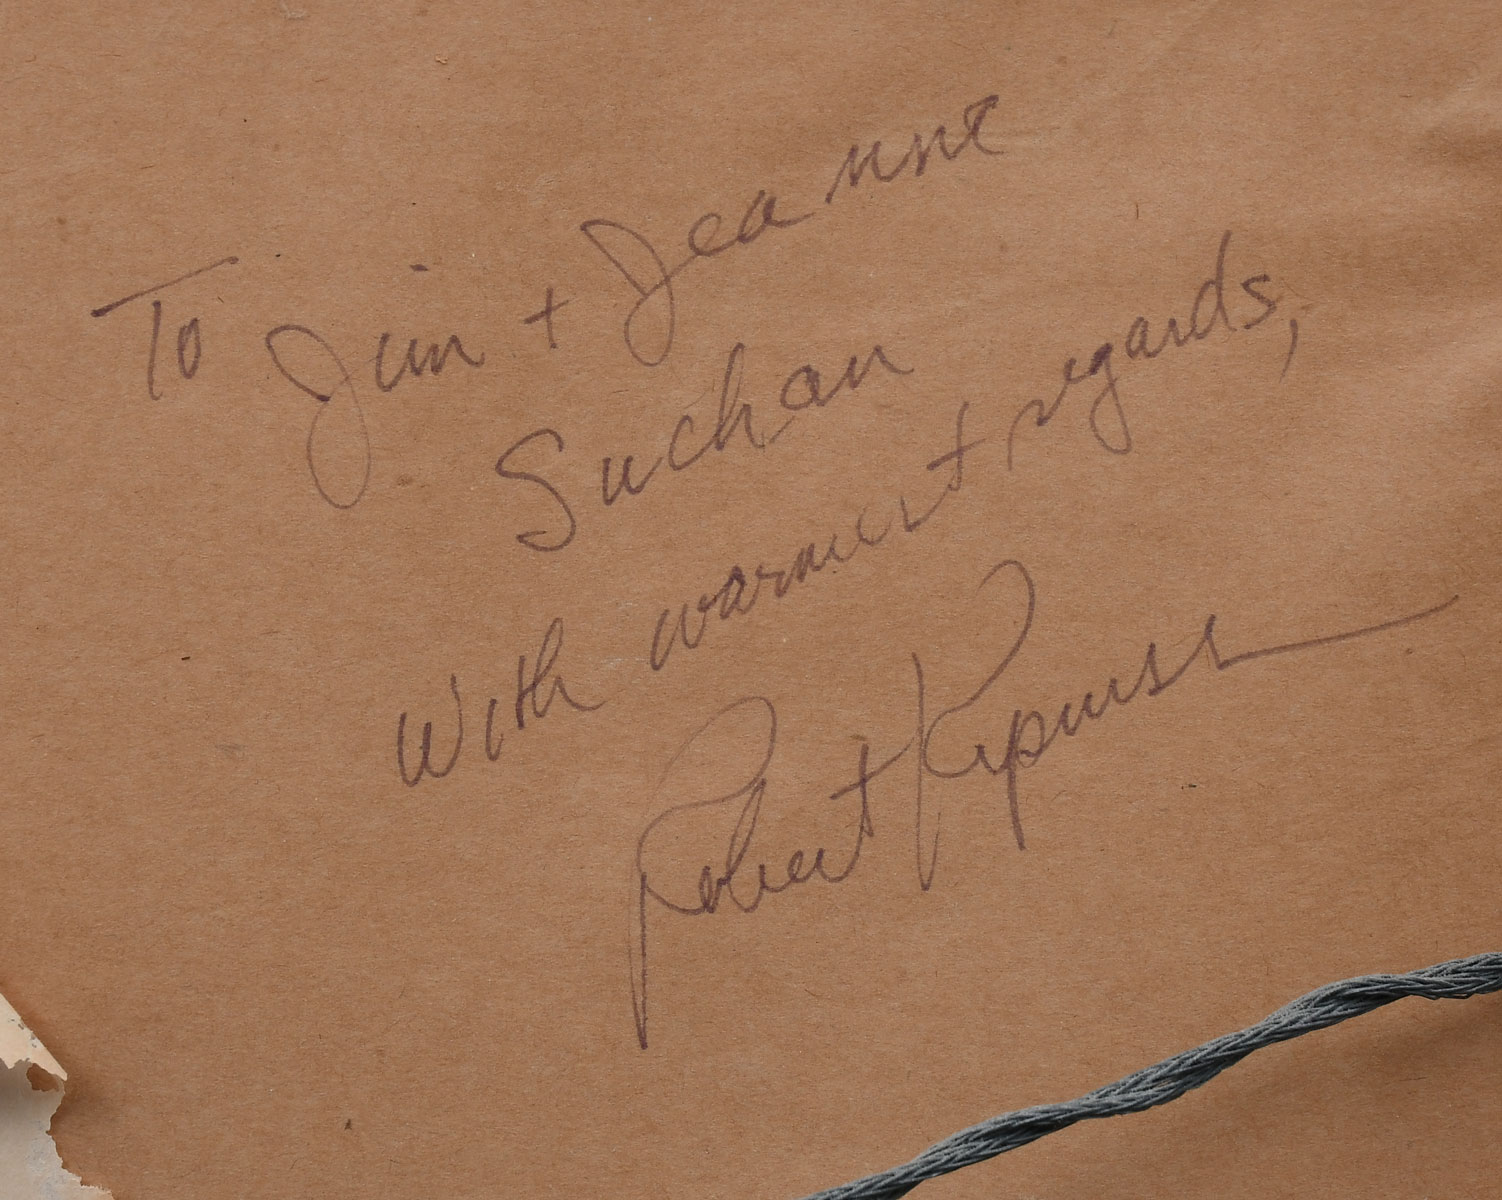 To Jim + Jeanne
Suchan
With warmest regards,
Robert